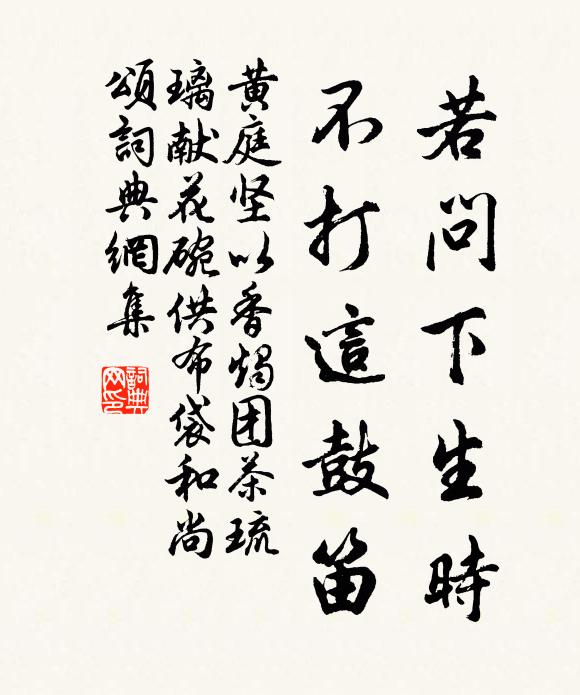 若問下生時
不打這鼓笛
黃庭坚以香燭团茶琉
璃献花碗供布袋和尚
頌詞典網集
詞典
网印